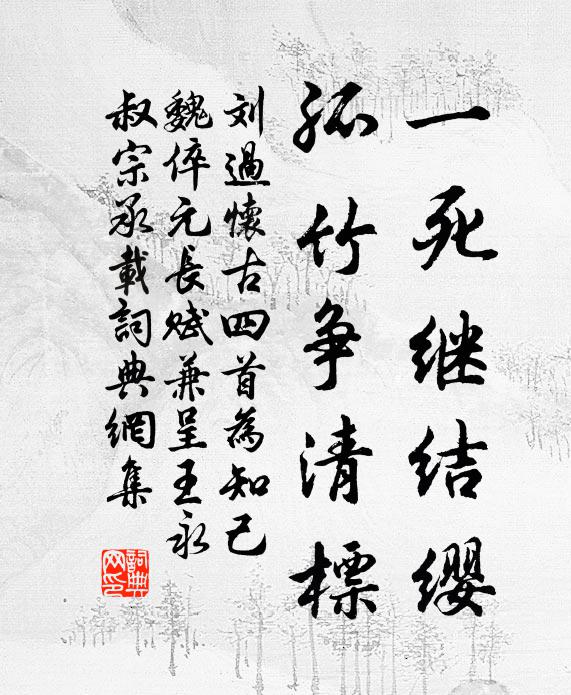 一死继结缨
孤竹争清標
刘過懷古四首為知己
魏倅元長赋兼呈王永
叔宗丞載詞典網集
詞典网印